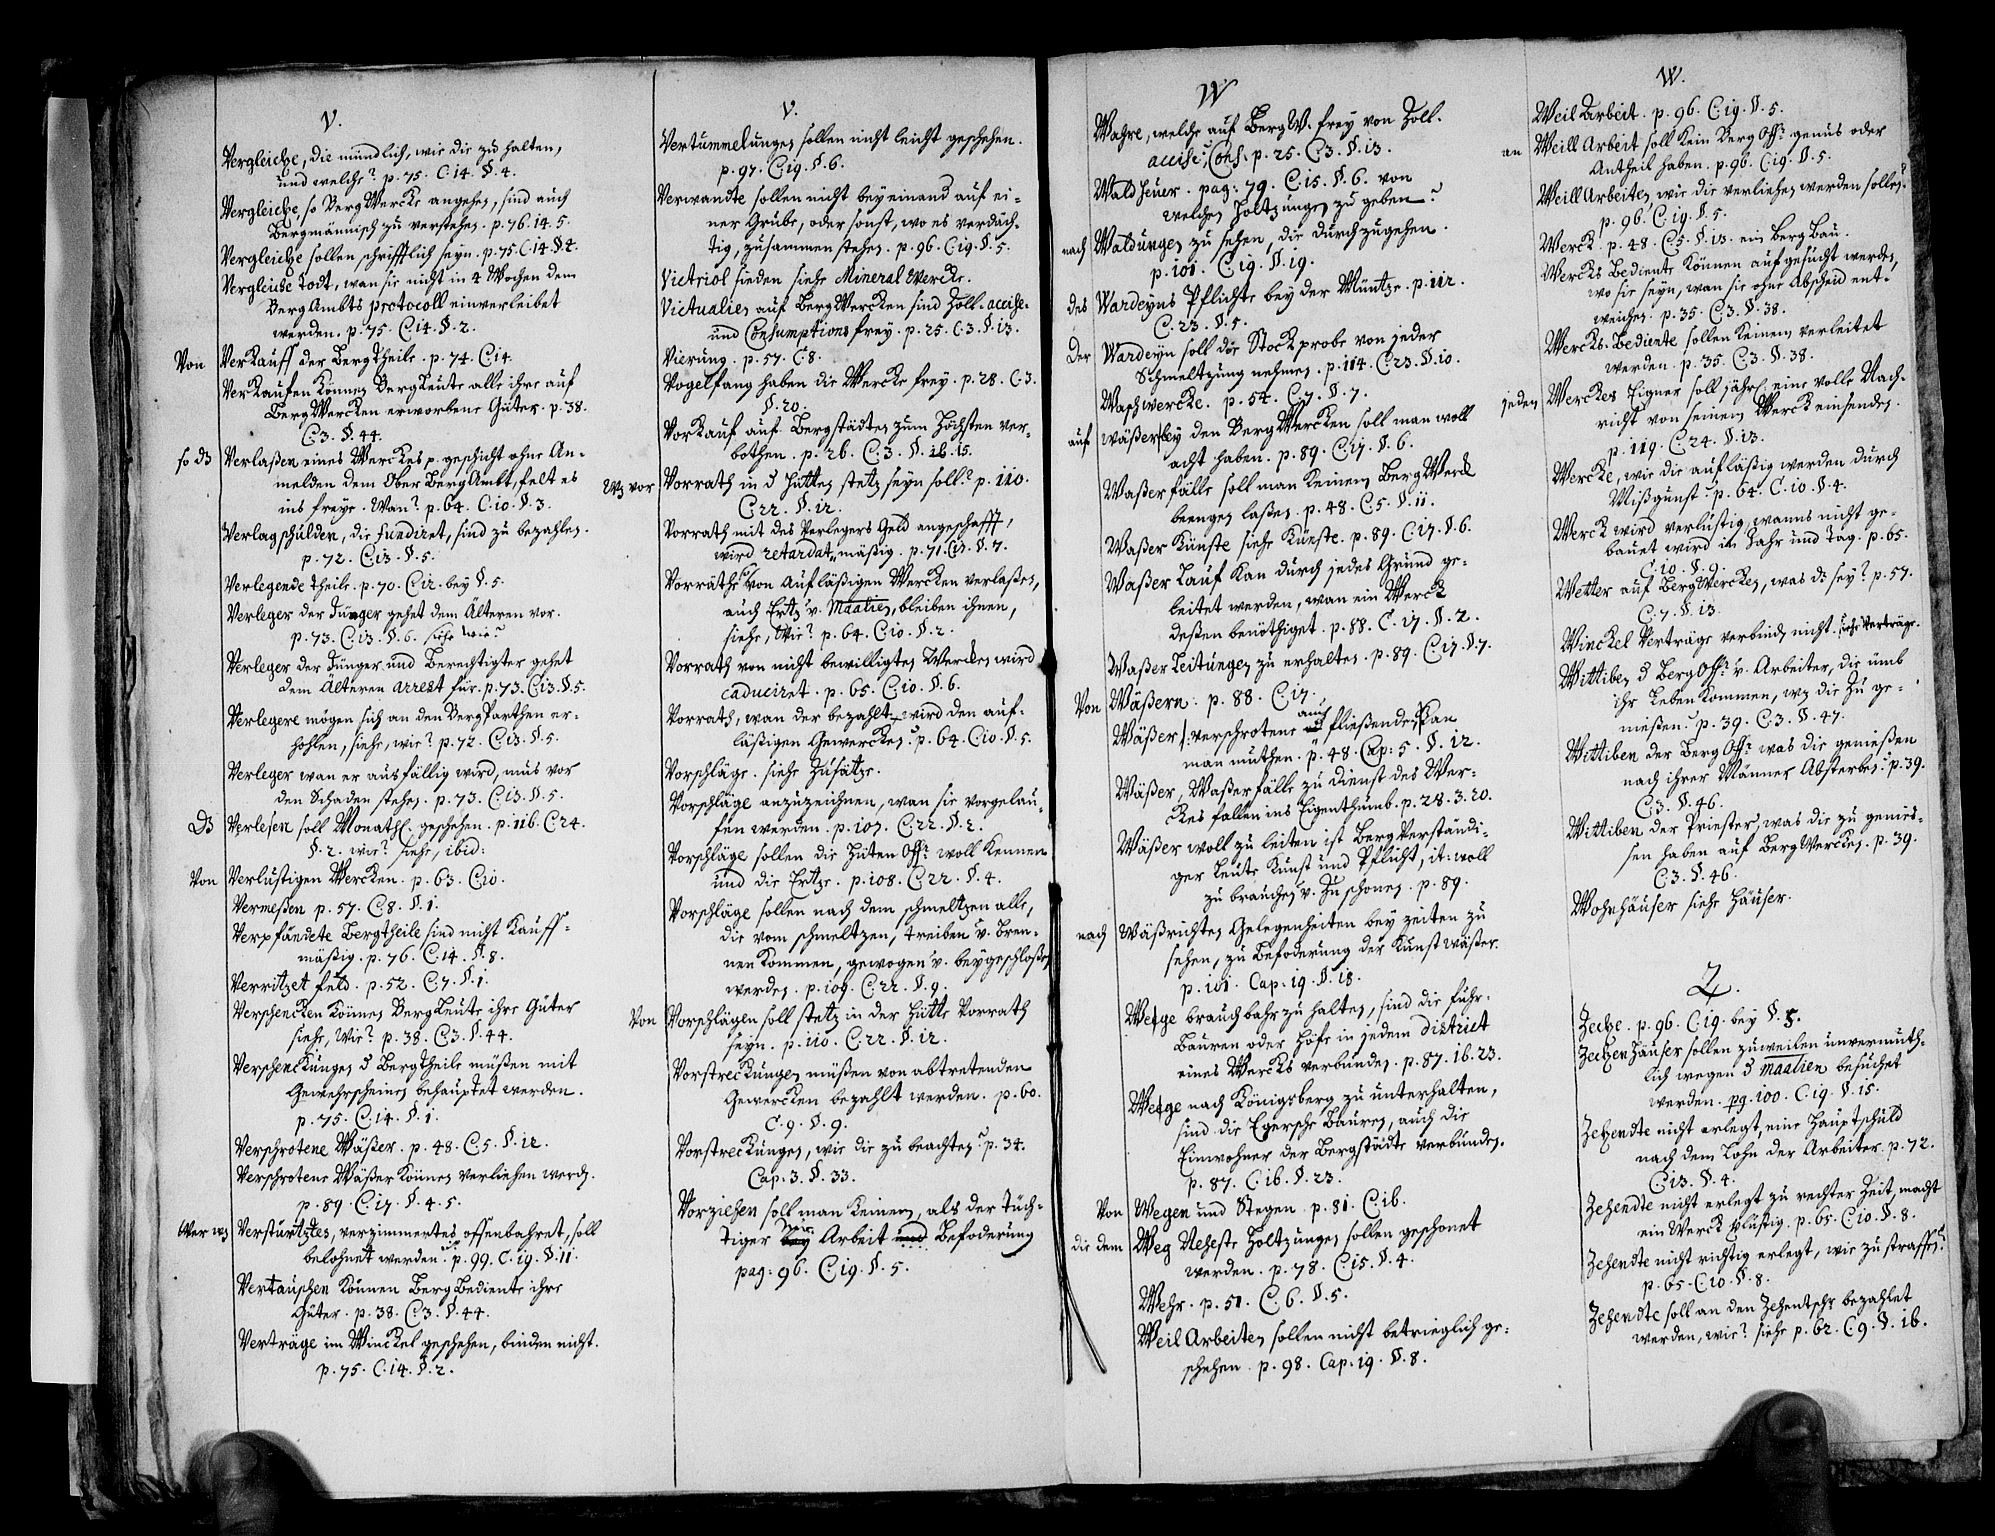 V.
Vergleiche, die mündlich, wie die zu halten,
und welche? p. 75. C. 14. §. 4.
Vergleiche, so BergWercke angehen, sind auch
Bergmännisch zu verstehen. p. 76. 14. 5.
Vergleiche sollen schrifftlich seyn. p. 75. C. 14. §. 4.
Vergleiche todt, wan sie nicht in 4 Wochen dem
BergAmbts protocoll einverleibet
werden. p. 75. C. 14. §. 2.
Von Verkauff der Bergtheile. p. 74. C. 14.
Verkaufen können BergLeute alle ihre auf
BergWercken erworbene Güter. p. 38.
C. 3. §. 44.
so ds Verlaßen eines Werckes p. geschicht ohne An-
melden dem Ober BergAmbt, felt es
ins freye. Wan? p. 64. C. 10. §. 3.
Verlagschulden, die fundiret, sind zu bezahlen.
p. 72. C. 13. §. 5.
Verlegende theile. p. 70. C. 12. bey §. 5.
Verleger der Jünger gehet dem Älteren vor.
p. 73. C. 13. §. 6. siehe wie?
Verleger der Jünger und Berechtigter gehet
dem Älteren arrest für. p. 73. C. 13. §. 5.
Verlegere mögen sich an den BergParthen er-
hohlen, siehe, wie? p. 72. C. 13. §. 5.
Verleger wan er ausfällig wird, mus vor
den Schaden stehen. p. 73. C. 13. §. 5.
Ds Verlesen soll Monathl. geschehen. p. 116. C. 24.
§. 2. wie? siehe, ibid:
Von Verlustigen Wercken. p. 63. C. 10.
Vermeßen p. 57. C. 8. §. 1.
Verpfändete Bergtheile sind nicht Kauff-
mäßig. p. 76. C. 14. §. 8.
Verritzet feld. p. 52. C. 7. §. 1.
Verschencken können BergLeute ihre Güter
siehe, Wie? p. 38. C. 3. §. 44.
Verschenckungen d BergTheile müßen mit
Gewehrscheinen behauptet werden.
p. 75. C. 14. §. 1.
Verschrotene Wäßer. p. 48. C. 5. §. 12.
Verschrotene Wäßer können verliehen werd.
p. 89. C. 17. §. 4. 5.
Wer ws Verstürtztes, verzimmertes offenbahret, soll
belohnet werden. p. 99. C. 19. §. 11.
Vertauschen können BergBediente ihre
Güter. p. 38. C. 3. §. 44.
Verträge im Winckel geschehen, binden nicht.
p. 75. C. 14. §. 2.
V.
Vertummelungen sollen nicht leicht geschehen.
p. 97. C. 19. §. 6.
Verwandte sollen nicht beyeinand auf ei-
ner Grube, oder sonst, wo es verdäch-
tig, zusammen stehen. p. 96. C. 19. §. 5.
Victriol sieden siehe Mineral Wercke.
Victualien auf BergWercken sind Zoll- accise-
und Consumptions frey. p. 25. C. 3. §. 13.
Vierung. p. 57. C. 8.
Vogelfang haben die Wercke frey. p. 28. C. 3.
§. 20.
Vorkauf auf Bergstädten zum Höchsten ver-
bothen. p. 26. C. 3. §. 16. 15.
Ws vor Vorrath in d Hütten stets seyn soll? p. 110.
C. 22. §. 12.
Vorrath mit des Verlegers Geld angeschafft,
wird retardat mäßig. p. 71. C. 13. §. 7.
Vorräthe von aufläßigen Wercken verlaßen,
auch Ertz v. Maalien, bleiben ihnen,
siehe, Wie? p. 64. C. 10. §. 2.
Vorrath von nicht bewilligten Wercken wird
caduciret. p. 65. C. 10. §. 6.
Vorrath, wan der bezahlt wird den auf-
läßigen Gewercken? p. 64. C. 10. §. 5.
Vorschläge. siehe Zusätze.
Vorschläge anzuzeichnen, wan sie vorgelau-
fen werden. p. 107. C. 22. §. 2.
Vorschläge sollen die Hüten Offr. woll kennen
und die Ertze. p. 108. C. 22. §. 4.
Vorschläge sollen nach dem schmeltzen alle,
die vom schmeltzen, treiben v. bren-
nen kommen, gewogen v. beygeschloßen
werden. p. 109. C. 22. §. 9.
Von Vorschlägen soll stets in der Hütte Vorrath
seyn. p. 110. C. 22. §. 12.
Vorstreckungen müßen von abtretenden
Gewercken bezahlt werden. p. 60.
C. 9. §. 9.
Vorstreckungen, wie die zu beachten? p. 34.
Cap. 3. §. 33.
Vorziehen soll man keinen, als der tüch-
tiger bey Arbeit und Befoderung
pag: 96. C. 19. §. 5.
W
Wahre, welche auf BergW. frey von Zoll.
accise. Cons. p. 25. C. 3. §. 13.
Wald heuer. pag: 79. C. 15. §. 6. von
welchen Holtzungen zu geben?
nach Waldungen zu sehen, die durchzugehen.
p. 101. C. 19. §. 19.
des Wardeyns Pflichte bey der Müntze. p. 112.
C. 23. §. 5.
Der Wardeyn soll die Stockprobe von jeder
Schmeltzung nehmen. p. 114. C. 23. §. 10.
Waschwercke. p. 54. C. 7. §. 7.
auf wäßer bey den BergWercken soll man woll
acht haben. p. 89. C. 17. §. 6.
Waßerfälle soll man keinem BergWerck
beengen laßen. p. 48. C. 5. §. 11.
Waßer Künste siehe Künste. p. 89. C. 17. §. 6.
Waßer Lauf kan durch jedes Grund ge-
leitet werden, wan ein Werck
deßen benöthiget. p. 88. C. 17. §. 2.
Waßer Leitungen zu erhalten. p. 89. C. 17. §. 7.
Von Wäßern. p. 88. C. 17.
Wäßer /: verschrotene auch fließende kan
man muthen. p. 48. Cap: 5. §. 12.
Wäßer, Waßerfälle zu dienst des Wer-
ckes fallen ins Eigenthumb. p. 28. 3. 20.
Wäßer woll zu leiten ist BergVerständi-
ger Leute Kunst und Pflicht, it: woll
zu brauchen v. zu schonen. p. 89.
nach Wäßrichten Gelegenheiten bey zeiten zu
sehen, zu Befoderung der Kunst wäßer.
p. 101. Cap: 19. §. 18.
Wege brauchbahr zu halten, sind die führ-
Bauren oder Höfe in jedem district
eines Wercks verbunden. p. 87. 16. 23.
Wege nach Königsberg zu unterhalten,
sind die Egersche Bauren, auch die
Einwohner der Bergstädte verbunden.
p. 87. C. 16. §. 23.
Von Wegen und Stegen. p. 81. C. 16.
die dem Weg Neheste Holtzungen sollen geschonet
werden. p. 78. C. 15. §. 4.
Wehr. p. 51. C. 6. §. 5.
Weil Arbeiten sollen nicht betrieglich ge-
schehen. p. 98. Cap. 19. §. 8.
W.
Weil Arbeit. p. 96. C. 19. §. 5.
an Weill Arbeit soll kein Berg Offr. genus oder
Antheil haben. p. 96. C. 19. §. 5.
Weill Arbeiten, wie die verliehen werden sollen?
p. 96. C. 19. §. 5.
Werck. p. 48. C. 5. §. 13. ein Berg Bau.
Wercks Bediente können aufgesucht werden,
wo sie seyn, wan sie ohne Abscheid ent-
weichen. p. 35. C. 3. §. 38.
Wercks-Bediente sollen keinen verleitet
werden. p. 35. C. 3. §. 38.
jeden Werckes Eigner soll jährl. eine volle Nach-
richt von seinem Werck einsenden.
p. 119. C. 24. §. 13.
Wercke, wie die aufläßig werden durch
Mißgunst? p. 64. C. 10. §. 4.
Werck wird verlustig, wanns nicht ge-
bauet wird in Jahr und Tag. p. 65.
C. 10. §. 9.
Wetter auf BergWercken, was ds sey? p. 57.
C. 7. §. 13.
Winckel Verträge verbind nicht. siehe Verträge.
Wittiben d Berg Offr. v. Arbeiter, die umb
ihr Leben kommen, ws die zu ge-
nießen? p. 39. C. 3. §. 47.
Wittiben der Berg Offr. was die genießen
nach ihrer Männer Absterben? p. 39.
C. 3. §. 46.
Wittiben der Priester, was die zu genies-
sen haben auf BergWercken. p. 39.
C. 3. §. 46.
Wohnhäuser siehe Häuser.
Z.
Zeche. p. 96. C. 19. bey §. 5.
Zechenhäuser sollen zuweilen unvermuth-
lich wegen d Maalien besuchet
werden. pg. 100. C. 19. §. 15.
Zehendte nicht erlegt, eine Hauptschuld
nach dem Lohn der Arbeiter. p. 72.
C. 13. §. 4.
Zehendte nicht erlegt zu rechter Zeit, macht
ein Werck verlustig. p. 65. C. 10. §. 8.
Zehendte nicht richtig erlegt, wie zu straffen?
p. 65. C. 10. §. 8.
Zehendte soll an den Zehentschr bezahlet
werden, wie? siehe p. 62. C. 9. §. 16.